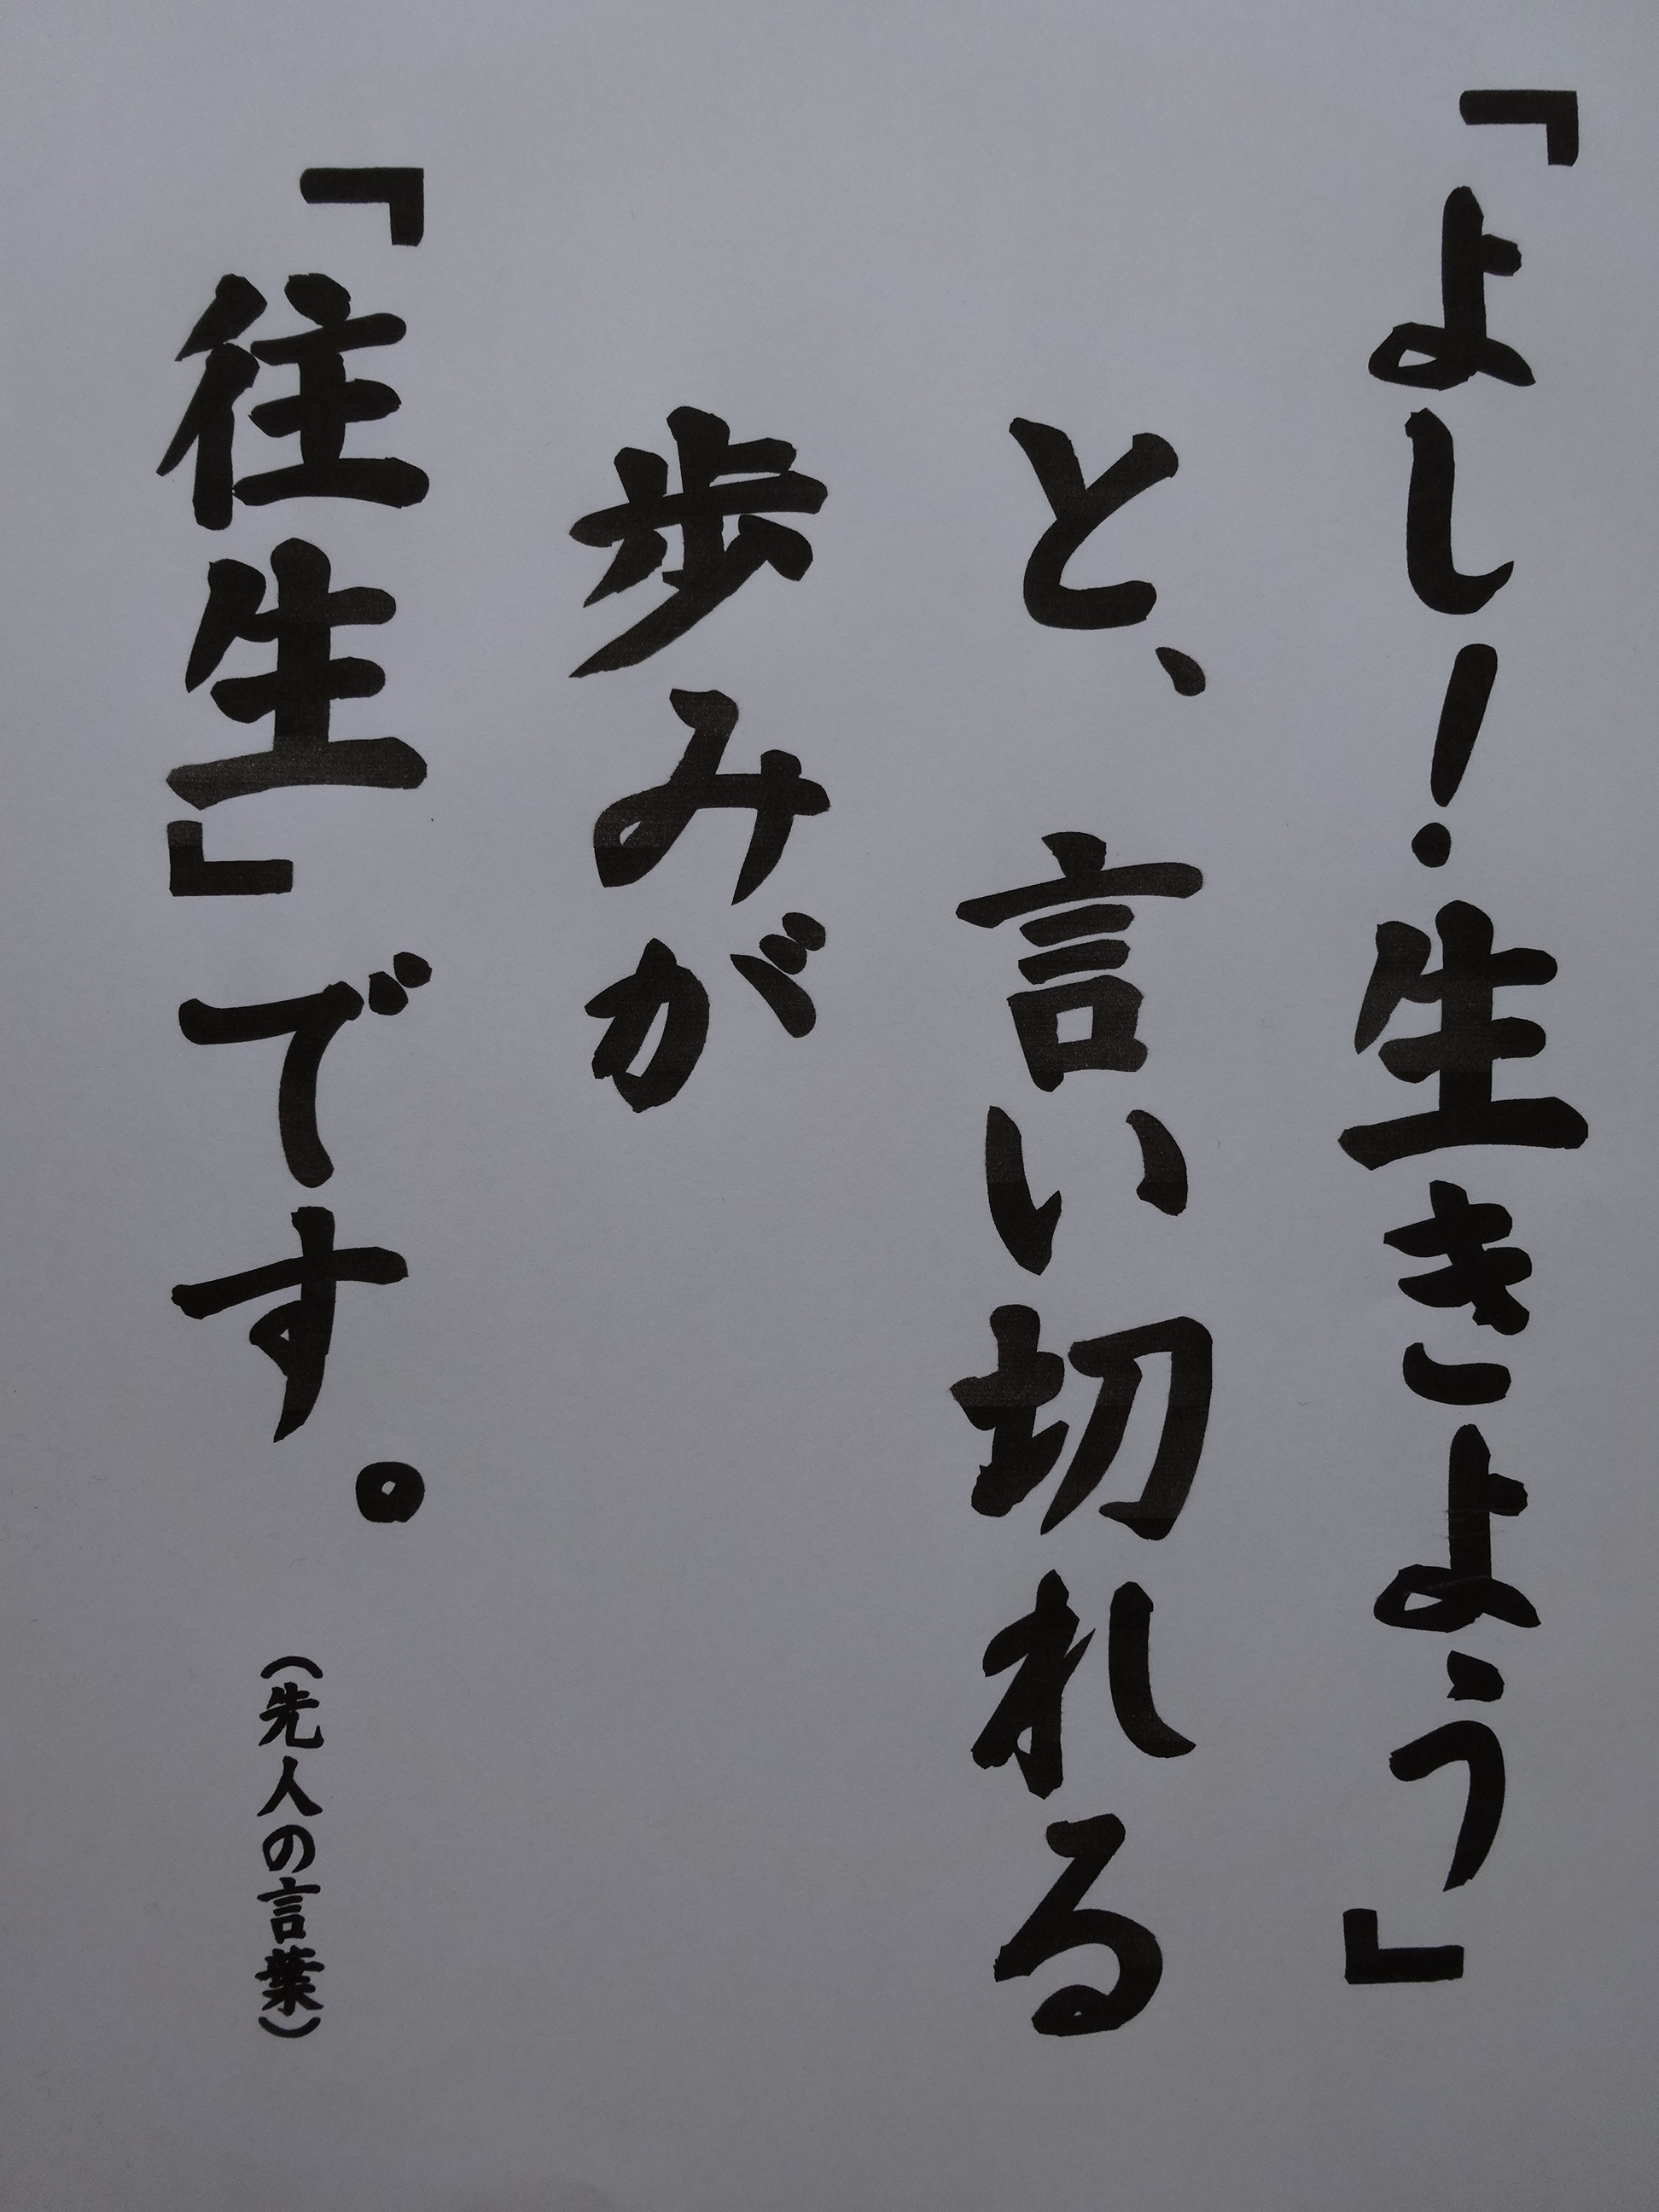 「よし!生きよう」
と、言い切れる
歩みが
「往生」です。
(先人の言葉)